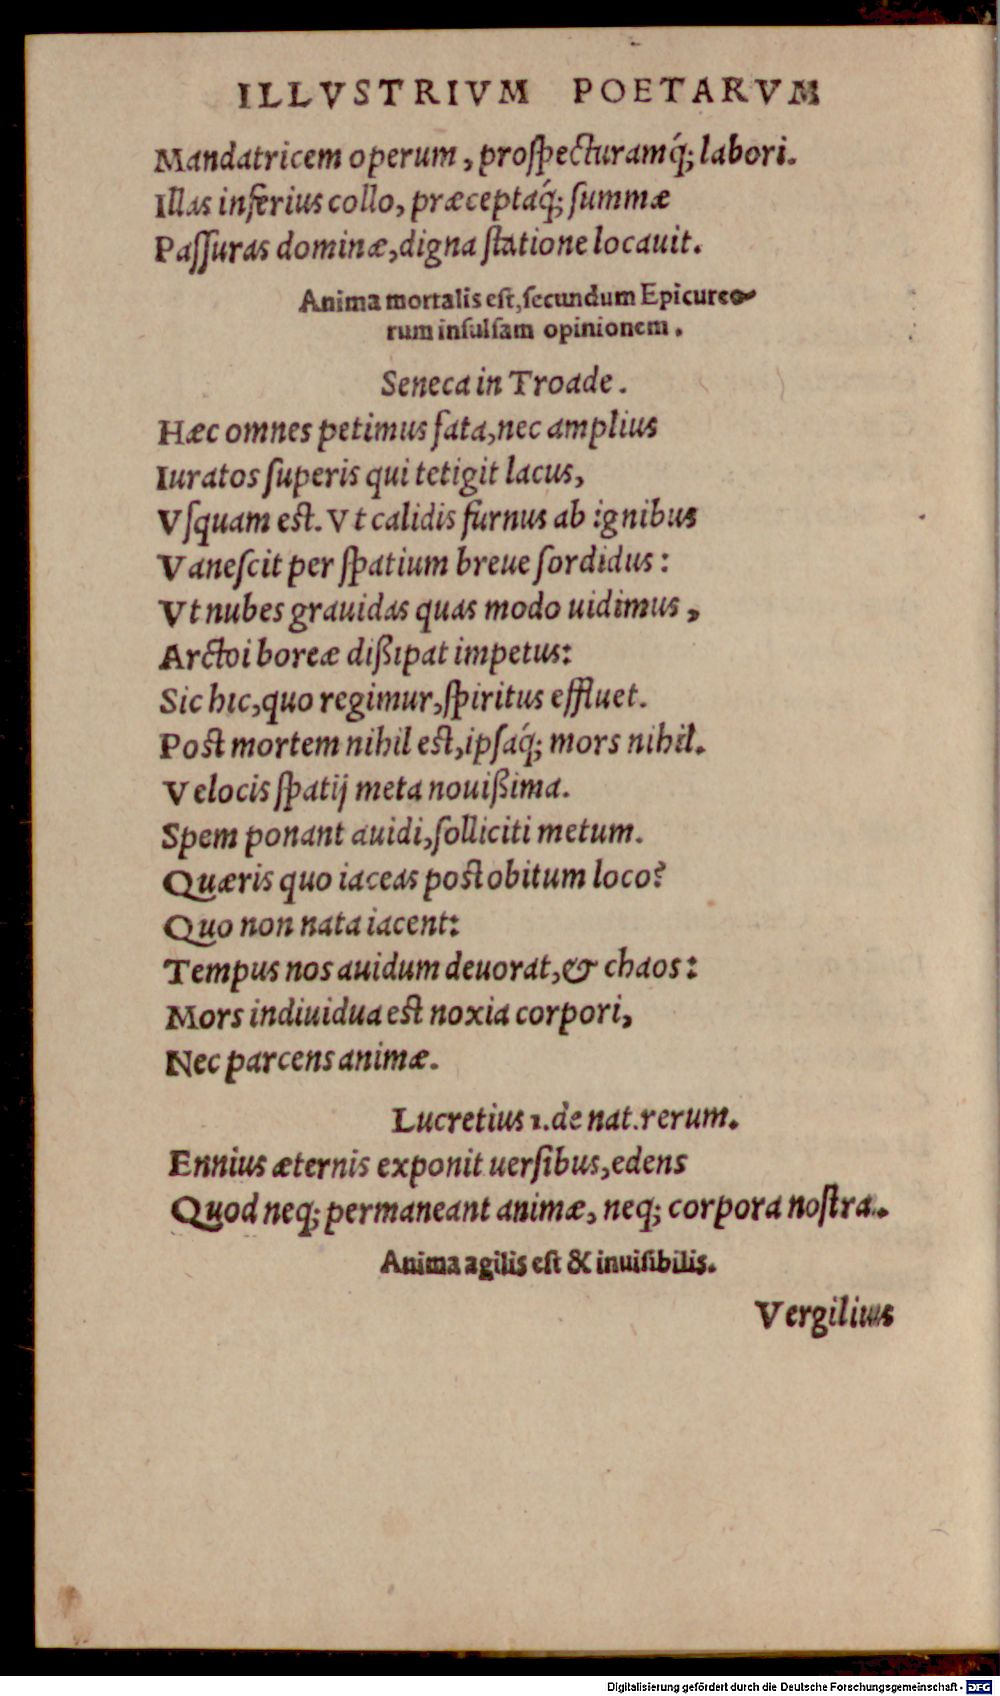 ILLVSTRIVM POETARVM
Mandatricem operum, proſpecturamq́; labori.
Illas inferius collo, præceptaq́; ſummæ
Paſſuras dominæ, digna ſtatione locauit.
Anima mortalis eſt, ſecundum Epicureo-
rum inſulſam opinionem.
Seneca in Troade.
Hæc omnes petimus fata, nec amplius
Iuratos ſuperis qui tetigit lacus,
Vſquam est. Vt calidis fumus ab ignibus
Vaneſcit per ſpatium breue ſordidus:
Vt nubes grauidas quas modo uidimus,
Arctoi boreæ dißipat impetus:
Sic hic, quo regimur, ſpiritus effluet.
Post mortem nihil est, ipſaq́; mors nihil.
Velocis ſpatij meta nouißima.
Spem ponant auidi, ſolliciti metum.
Quæris quo iaceas post obitum loco?
Quo non nata iacent:
Tempus nos auidum deuorat, & chaos:
Mors indiuidua est noxia corpori,
Nec parcens animæ.
Lucretius 1. de nat. rerum.
Ennius æternis exponit uerſibus, edens
Quod neq; permaneant animæ, neq; corpora noſtra.
Anima agilis eſt & inuiſibilis.
Vergilius
Digitalisierung gefördert durch die Deutsche Forschungsgemeinschaft - DFG